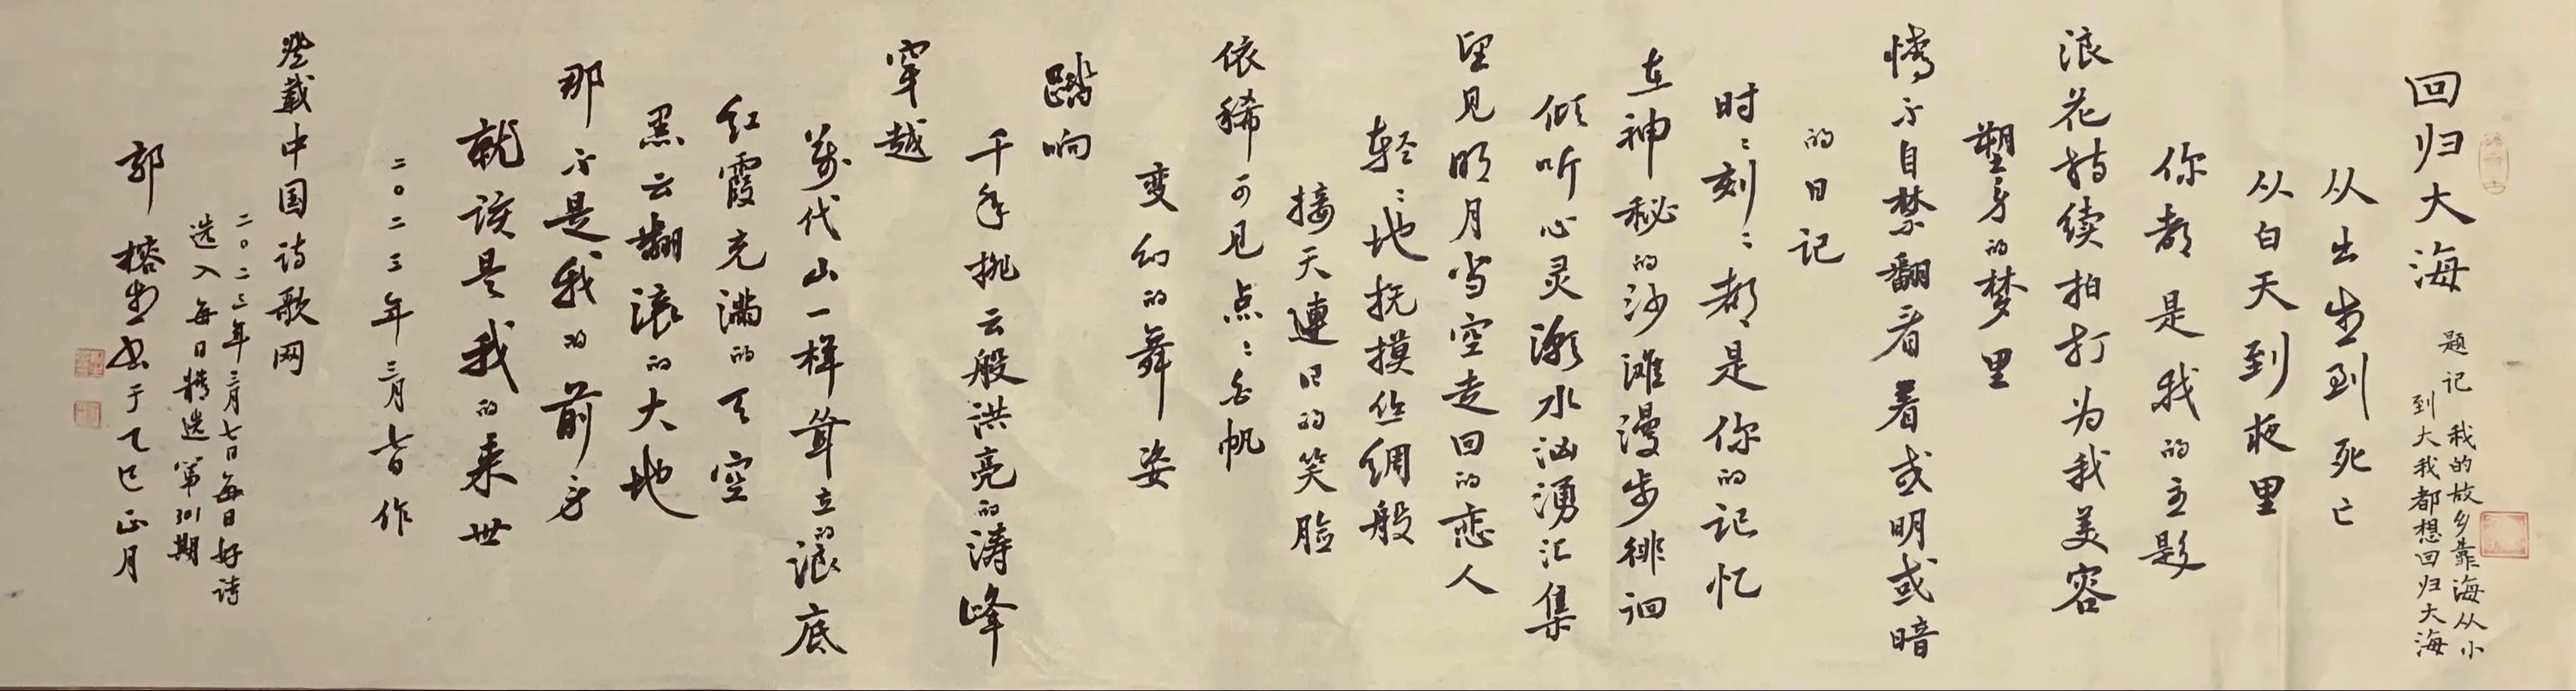 回归大海
题记 我的故乡靠海从小
到大我都想回归大海
从出生到死亡
从白天到夜里
你都是我的主题
浪花持续拍打为我美容
塑身的梦里
情不自禁翻看着或明或暗
的日记
时时刻刻都是你的记忆
在神秘的沙滩漫步徘徊
倾听心灵潮水汹涌汇集
望见明月当空走回的恋人
轻轻地抚摸丝绸般
接天连日的笑脸
依稀可见点点白帆
变幻的舞姿
踏响
千年挑云般洪亮的涛峰
穿越
万代山一样耸立的浪底
红霞充满的天空
黑云翻滚的大地
那不是我的前身
就该是我的来世
二〇二三年三月七日作
登载中国诗歌网
二〇二三年三月七日每日好诗
选入每日精选第301期
郭榕生书于乙巳正月